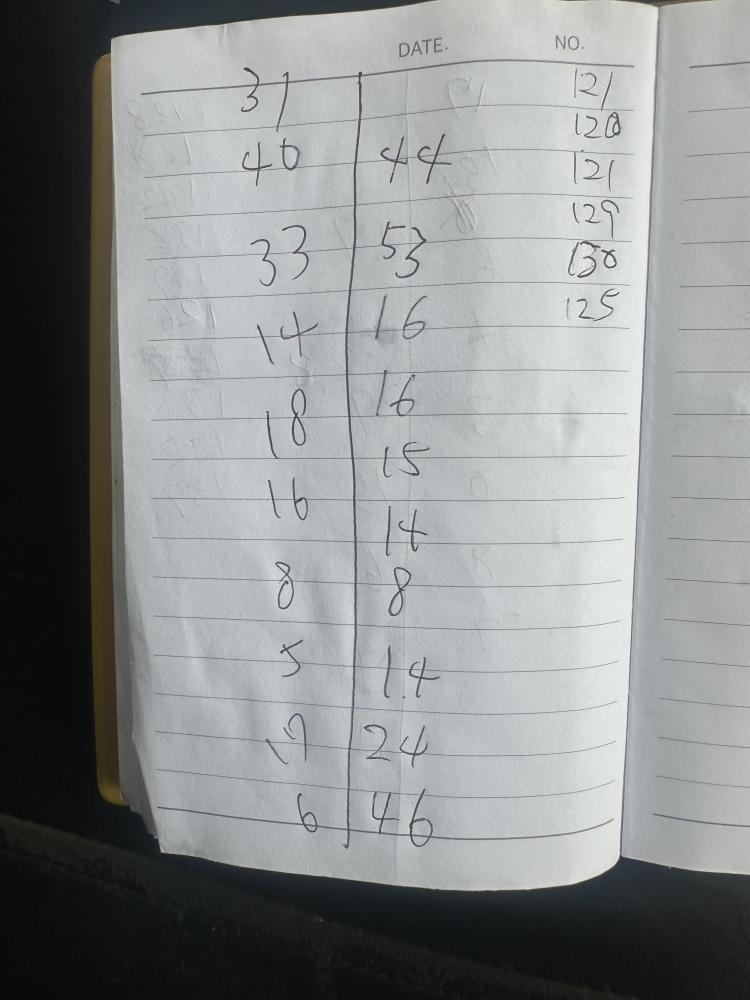 DATE. NO.
31 121
120
40 44 121
129
33 53 130
14 16 125
18 16
16 15
14
8 8
5 14
19 24
6 46